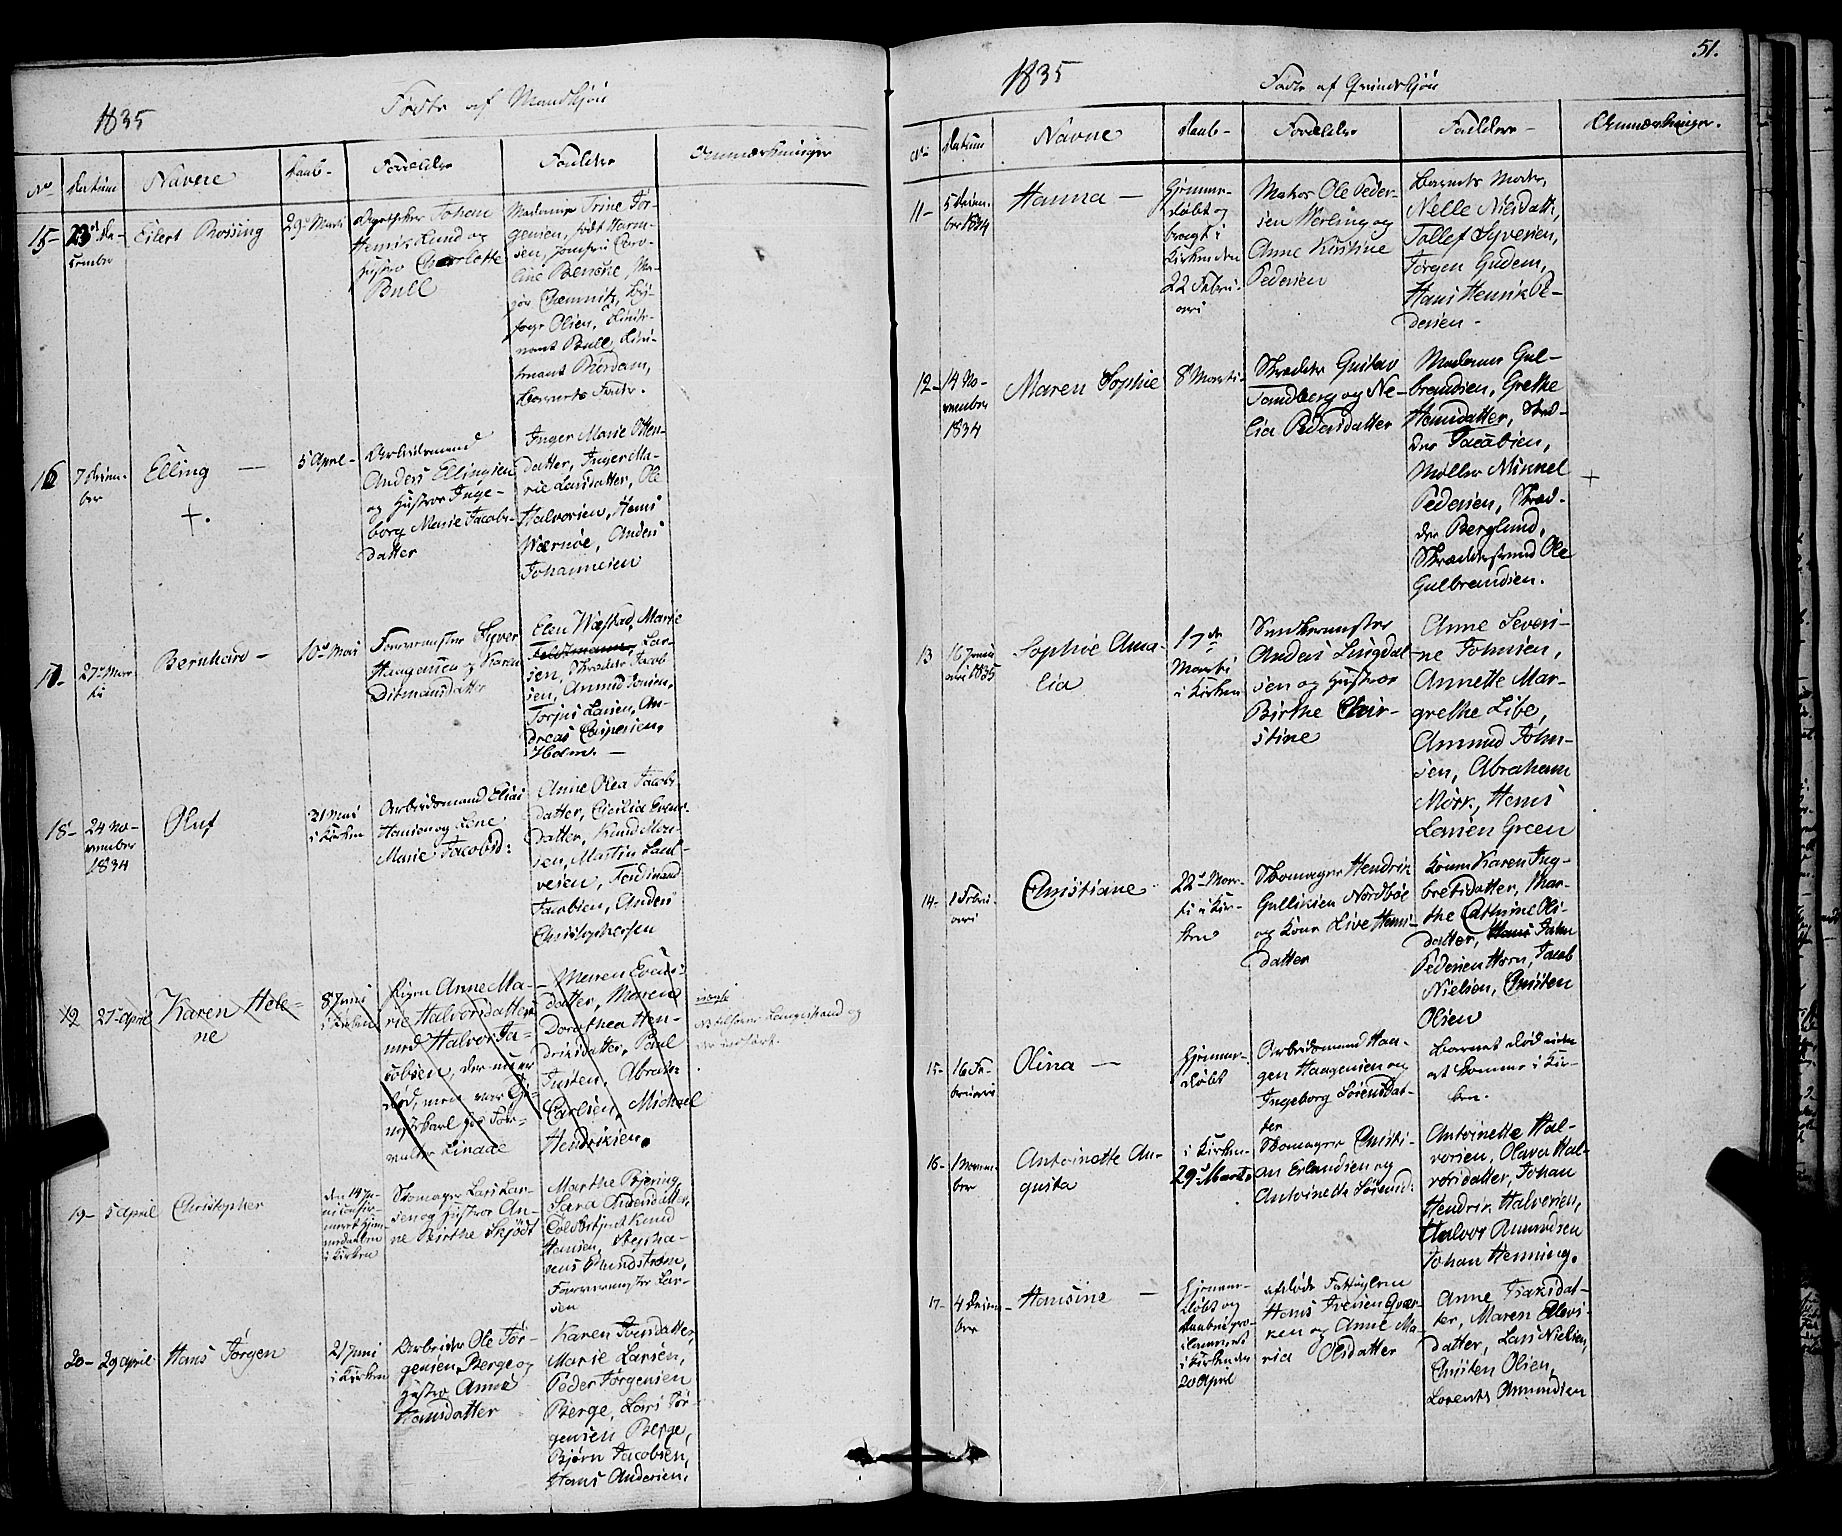 1835
Fødte af Mandkjøn
No
Datum
Navne
Daab-
Forældre
Faddere
Anmærkninger
15-
23de De-
cember
Eilert Rossing
29de Marti
Apotheker Johan
Henrik Lund og
Hustro Charlotte
Bull
Madame Trine Jør-
gensen, født Harm-
sen, Jomfru Caro-
line Bencke, Ma-
jor Chemnitz, By-
foge Olsen, Lieute-
nant Bull, Lieu-
tenant Rørdam,
Barnets Fader.
16
7 Decem-
ber
Elling —
+.
5 April-
Arbeidsmand
Anders Ellingsen
og Hustroe Inge-
borg Marie Jacobs-
datter
Inger Marie Otten-
datter, Inger Ma-
rie Larsdatter, Ole
Halvorsen, Hans
Wærnøe, Anders
Johannesen
17-
27de Mar-
ti
Bernhard -
10de Mai
Farvemester Syver
Haagensen og Karen
Ditmansdatter
Elen Wæstad, Marie
Feldtmann, Lar-
sen, Skræder Jacob-
sen, Anmund Jonsen,
Torjus Larsen, An-
dreas Caspersen,
Holm. —
18-
24 No-
vember
1834
Oluf
21 Mai
i Kirken
Arbeidsmand Elias
Hansen og Lene
Marie Jacobsd:
Anne Olea Jacobs-
datter, Cicilia Evens-
datter, Knud Mon-
sen, Martin Laul-
vesen, Ferdinand
Jacobsen, Anders
Christophersen
19
27de April
Karen Hele-
ne
8 Juni
i Kirken
Pigen Anne Ma-
rie Halvorsdatter
med Halvor Ja-
cobsen, der nu er
død, men var Ga-
uskarl hos For-
valter Linaae
Maren Evens-
datter, Maren
Dorothea Hen-
driksdatter, Poul
Justen, Abrah:
Carlsen, Michael
Hendriksen.
uægte
NB tilhører Langesund og
der indført.
19-
5 April
Christopher
den 14 Ju-
ni confir-
meret Hjem-
medaaben
i Kirken
Skomager Lars Lar-
sen og Hustroe An-
ne Birthe Skjødt
Marthe Bjering,
Sara Andersdatter,
Coldbetjent Knud
Hansen, Stepha-
nus Rundstrøm,
Farvermester Lar-
sen
20-
29 April
Hans Jørgen
21 Juni
i Kirken
Arbeider Ole Jør-
gensen Berge og
Hustro Anne
Hansdatter
Karen Ivensdatter,
Marie Larsen,
Peder Jørgensen
Berge, Lars Jør-
gensen Berge,
Bjørn Jacobsen,
Hans Andersen.
51.
1835
Fødte af Qvindekjøn
No
Datum
Navne
Daab-
Forældre
Faddere -
Anmærkninger.
11-
5 Decem-
ber 1834
Hanna —
Hjemme-
døbt og
bragt i
Kirken den
22 Febru-
ari
Matros Ole Peder-
sen Werling og
Anne Kirstine
Pedersen
Barnets Moder,
Nelle Nilsdatt:,
Tollef Syversen,
Jørgen Gudem,
Hans Henrik Pe-
dersen -
12-
14 No-
vember
1834
Maren Sophie
8de Marti-
Skrædder Gustav
Sandberg og Ne-
lia Pedersdatter
Madame Gul-
brandsen, Grethe
Hansdatter, Skræ-
der Jacobsen,
Møller Minnel
Pedersen, Skræd-
der Berglund,
Skrædersvend Ole
Gulbrandsen.
+
13
16 Janu-
ari 1835
Sophie Ama-
lia
17de
Marti
i Kirken
Smedemester
Anders Lingdal-
sen og Hustroe
Birthe Chir-
stine
Anne Severi-
ne Johnsen,
Annette Mar-
grethe Libe,
Amund John-
sen, Abraham
Mörk, Hans
Larsen Green
14-
1 Febru-
ari
Christiane
22de Mar-
ti i Kir-
ken
Skomager Hendrik
Gulliksen Nordbøe
og Kone Live Hans-
datter
Konen Karen Ing-
bretsdatter, Mar-
the Cathrine Ols-
datter, Hans John
Pedersen Horn, Jacob
Nielsen, Christen
Olsen
15-
16 Fe-
bruari
Olina —
Hjemme-
døbt
Arbeidsmand Haa-
gen Haagensen og
Ingeborg Sørensdat-
ter
Barnet død uden
at komme i Kir-
ken.
16-
1 Novem-
ber
Antoinette Au-
gusta
i Kirken
29de Marti
Skomager Christi-
an Erlandsen og
Antoinette Sørensd:
Antoinette Hal-
vorsen, Olava Hal-
vorsdatter, Johan
Hendrik Halvorsen,
Halvor Amundsen
Johan Henning.
17-
4 Decem-
ber
Hansine —
Hjemme-
døbt og
Daaben pro-
clameret
i Kirken den
20 April
afdøde Fattiglem
Hans Iversen Qvær-
ken og Anne Ma-
ria Olsdatter
Anne Isaksdat-
ter, Maren Olavs-
datter, Lars Nielsen,
Christen Olsen,
Lorents Amundsen